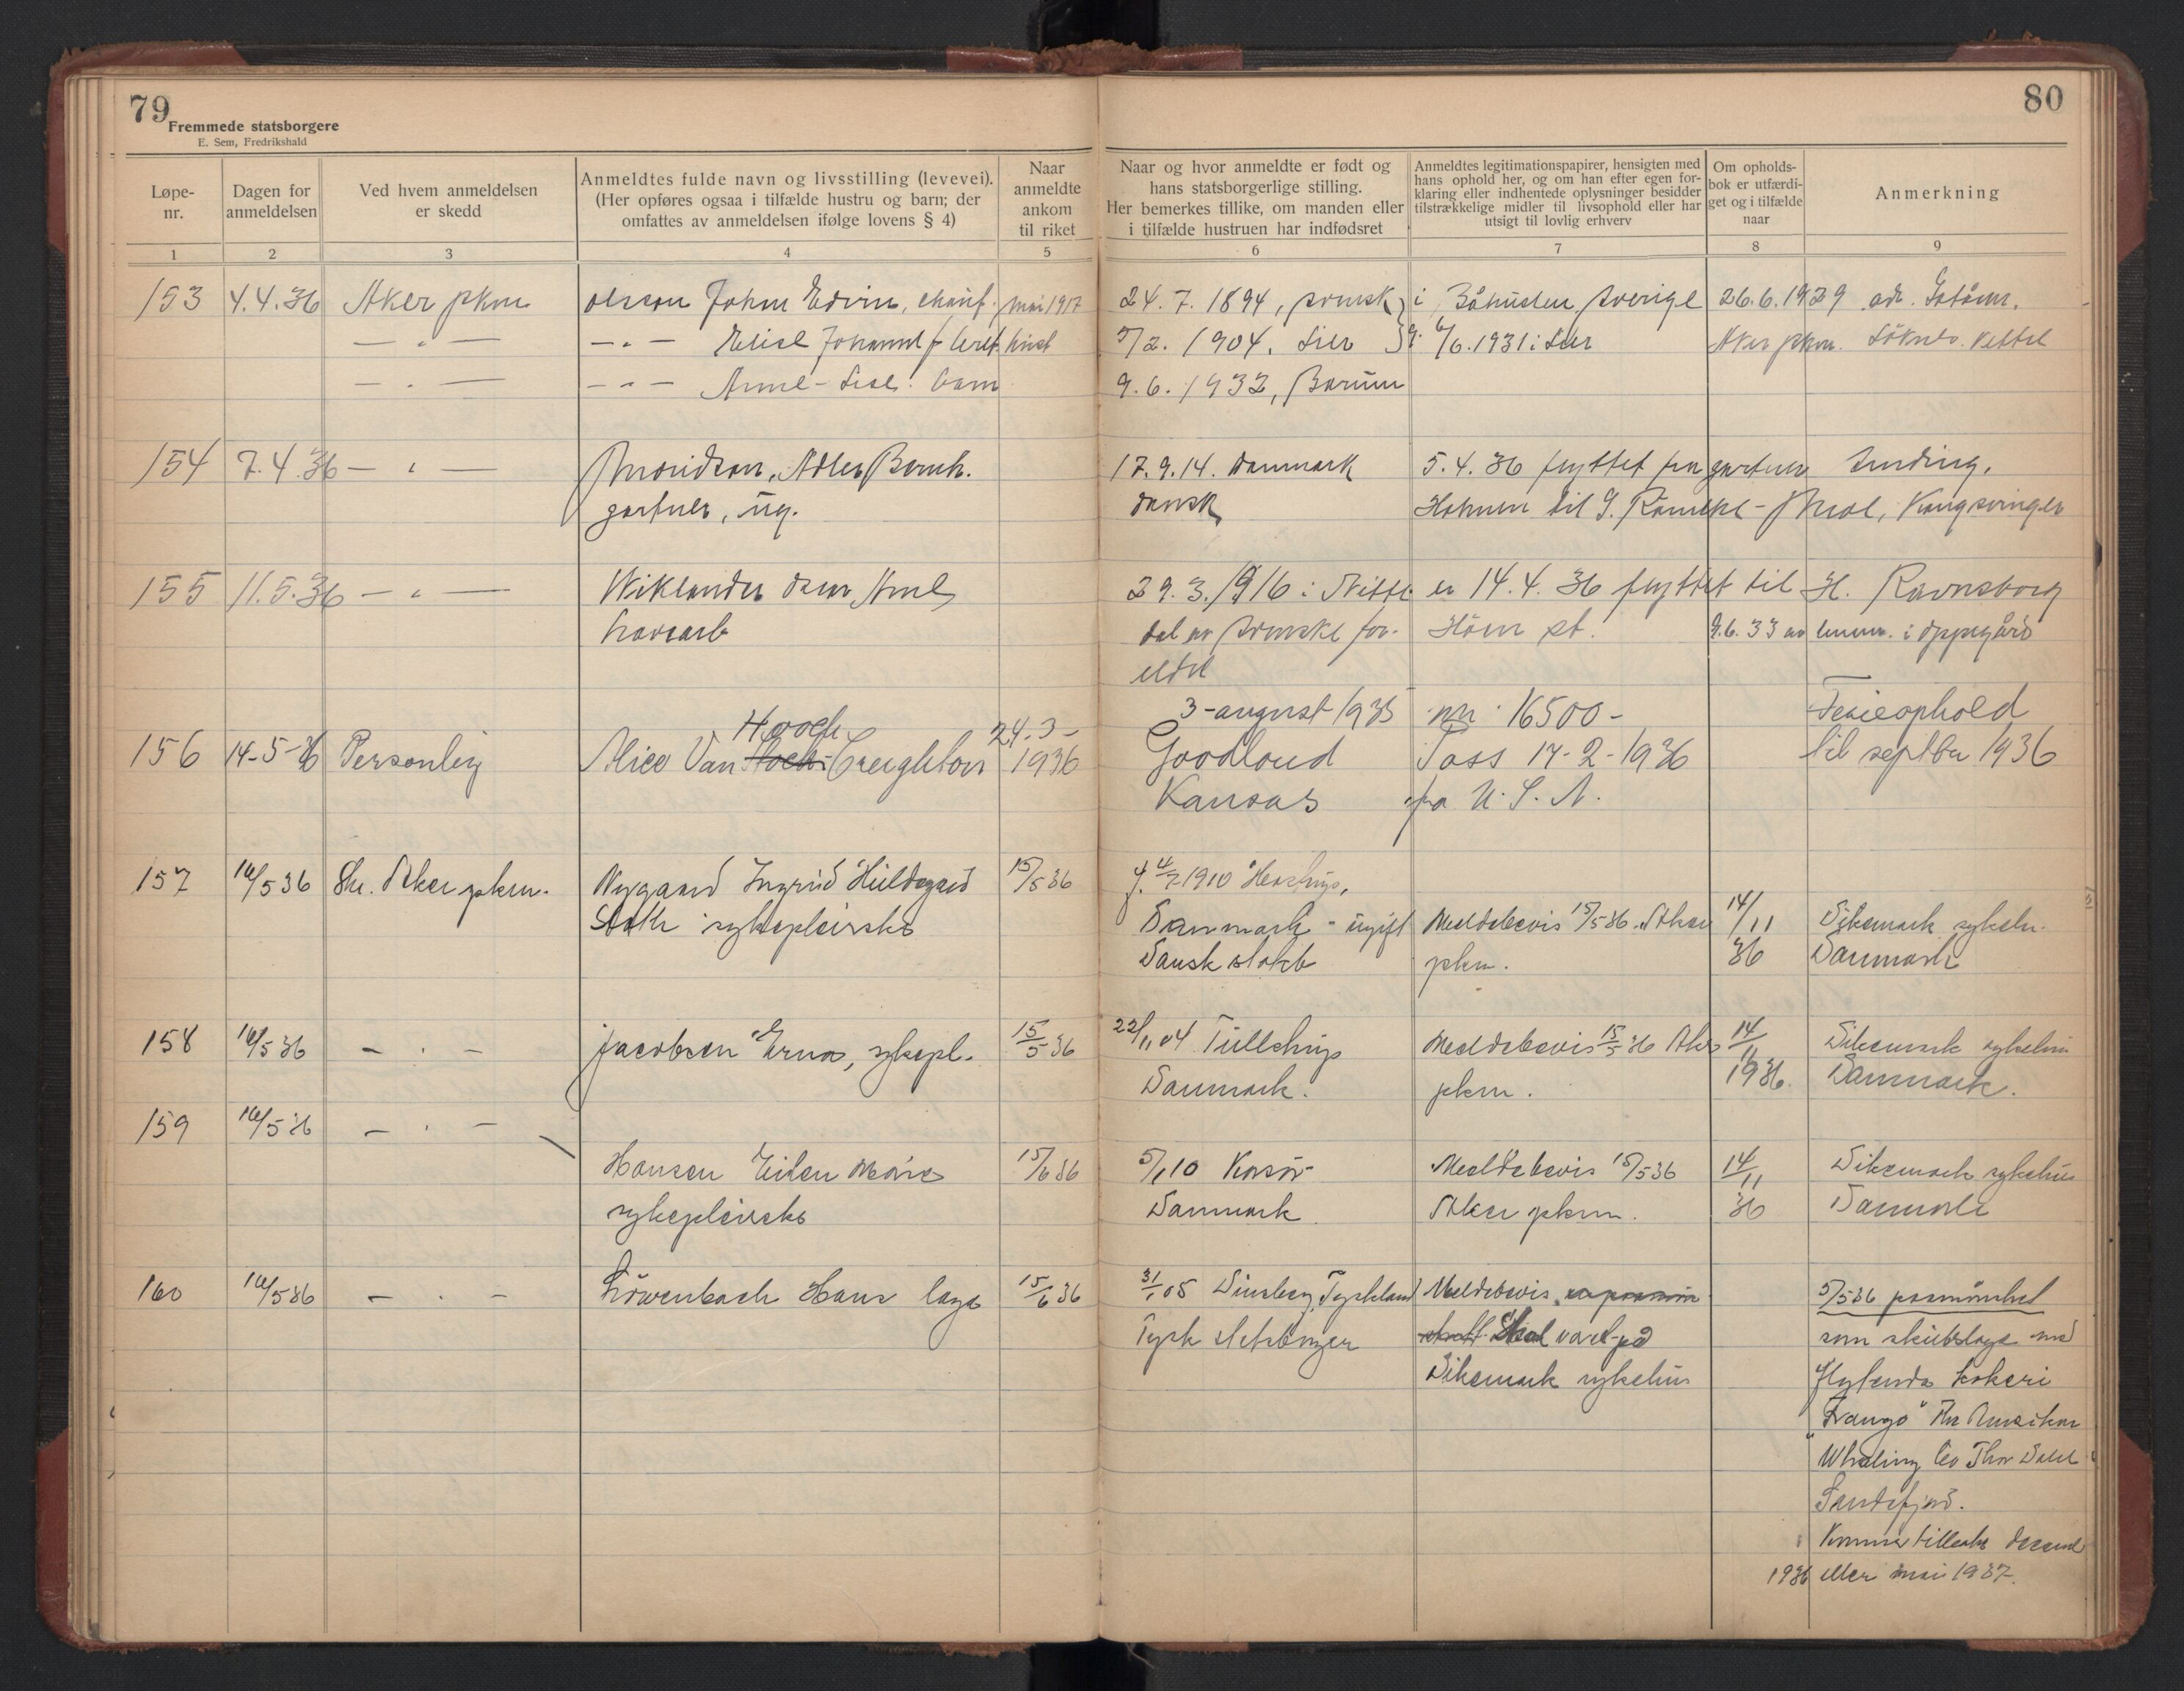 79
Fremmede statsborgere
E. Sem, Fredrikshald
80
Løpe-
nr.
Dagen for
anmeldelsen
Ved hvem anmeldelsen
er skedd
Anmeldtes fulde navn og livsstilling (levevei).
(Her opføres ogsaa i tilfælde hustru og barn; der
omfattes av anmeldelsen ifølge lovens § 4)
Naar
anmeldte
ankom
til riket
Naar og hvor anmeldte er født og
hans statsborgerlige stilling.
Her bemerkes tillike, om manden eller
i tilfælde hustruen har indfødsret
Anmeldtes legitimationspapirer, hensigten med
hans ophold her, og om han efter egen for-
klaring eller indhentede oplysninger besidder
tilstrækkelige midler til livsophold eller har
utsigt til lovlig erhverv
Om opholds-
bok er utfærdi-
get og i tilfælde
naar
Anmerkning
1 2 3 4 5 6 7 8 9
153 4.4.36 Aker pkm Olsson Johan Edvin, chauf. mai 1917 24.7.1894, svensk i Båhuslen Sverige 26.6.1929
— " — — " — Elise 5/2. 1904. Lier g. 6/6.1931 i Lier Aker pkm.
— " — — " — Anne-Lise barn 9.6.1932, Bærum
154 7.4.36 — " — Adler Bernh. 17.9.14. Danmark 5.4.36 flyttet fra gartner
gartner, ug. dansk til Kongsvinger
155 11.5.36 — " — 29.3.1916 i Nitte- er 14.4.36 flyttet til H. Ravnsborg
havearb dal av svenske for- Høn st. 9.6.33 av lensm. i Oppegård
eldre
156 14-5-36 Personlig Alice Van Hoogh Creighton 24-3-1936 3-august 1935 nr. 16500- Ferieophold
Goodland Pass 17-2-1936 til septbr 1936
Kansas fra U.S.A.
157 16/5 36 Skr. Aker pkm. Nygaard Ingrid Hildegard 15/5 36 f. 4/7 1910
sykepleierske Danmark - ugift Meldebevis 15/5 36 Aker 14/11 Dikemark sykeh.
Dansk statsb pkm. 36 Danmark
158 16/5 36 — " — Jacobsen Erna, sykepl. 15/5 36 22/11 04 Tullebup Meldebevis 15/5 36 Aker 14/11 Dikemark sykehus
Danmark. pkm. 1936. Danmark.
159 16/5 36 — " —
Hansen Eilen Marie 15/6 36 5/1 10 Korsör Meldebevis 15/5 36 14/11 Dikemark sykehus
sykepleierske Danmark Aker pkm. 36 Danmark
160 16/5 36 — " — Löwenbach Hans læge 15/6 36 31/1 05 Duisberg, Tyskland Meldebevis 5/5 36 påmönstret
Tysk statsborger Skal være på som skibslæge med
Dikemark sykehus Flytende kokeri
"Frango"
Whaling Co Thor Dahl
Sandefjord.
Kommer tilbake desemb
1936 eller mai 1937.